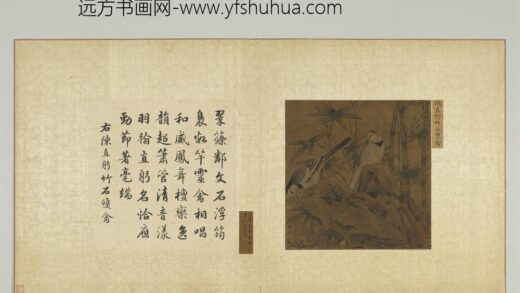 远方书画网-www.yfshuhua.com
翠篠鄰文石浮筠
裊數竿靈禽相唱
和威鳳舞檀欒逸
韻超簫管清音漾
羽翰直躬名恰應
勁節著毫端
右陳直躬竹石禽